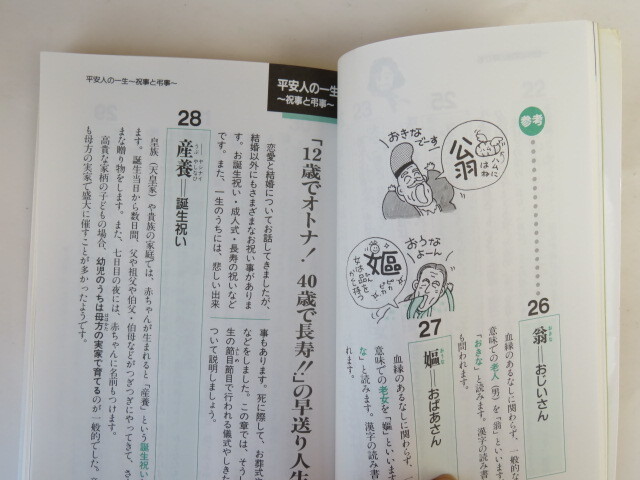 参考
おきな
でーす
翁
ハムに
はね
おうな
よーん
嫗
26
翁＝おじいさん
血縁のあるなしに関わらず、一般的な
意味での老人（男）を「翁」といいます
「おきな」と読みます。漢字の読み書
も問われます。
27
嫗＝おばあさん
血縁のあるなしに関わらず、一
意味での老女を「嫗」といいます
な」と読みます。漢字の読み書
れます。
平安人の一生
〜祝事と弔事〜
「12歳でオトナ！ 40歳で長寿!!」の早送り人生
恋愛と結婚についてお話してきましたが、
結婚以外にもさまざまなお祝い事がありま
す。お誕生祝い・成人式・長寿の祝いなど
です。また、一生のうちには、悲しい出来
事もあります。死に際して、お葬式や
などをしました。この章では、そうし
生の節目節目で行われる儀式やしきた
ついて説明しましょう。
28
産養＝誕生祝い
皇族（天皇家）や貴族の家庭では、赤ちゃんが生まれると「産養」という誕生祝い
ます。誕生当日から数日間、父や祖父や伯父・伯母などがつぎつぎにやってきて、さ
まな贈り物をします。また、七日目の夜には、赤ちゃんに名前もつけます。
高貴な家柄の子どもの場合、幼児のうちは母方の実家で育てるのが一般的でした。
も母方の実家で盛大に催すことが多かったようです。
平安人の一生〜祝事と弔事〜